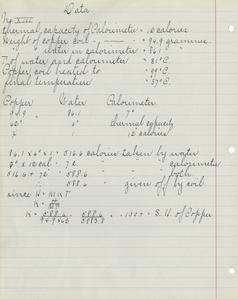 Data
No XIII
Thermal capacity of Calorimeter = 10 calories
Weight of copper coil = 94.9 grammes
" " water in calorimeter = 86.1 "
T. of water and calorimeter = 31°C.
Copper coil heated to = 99°C.
Final temperature = 37°C.
Copper Water Calorimeter
94.9 86.1 7°
62° 6° thermal capacity
x 1 10 calories
86.1 x 6° x 1 = 516.6 calories taken by water
7° x 10 cal = 72. " " " calorimeter
516.6 + 72 = 588.6 " " " both
" 588.6 " given off by coil
since H = M K T
K =
K = 588.6 / 94.9 x 62 = 588.6 / 5883.8 = .1007 = S.H. of Copper